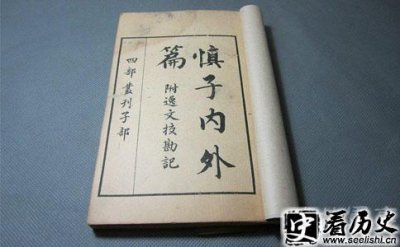 慎子內外
篇
附逸文校勘記
四部叢刊子部
看历史
www.seelishi.cn